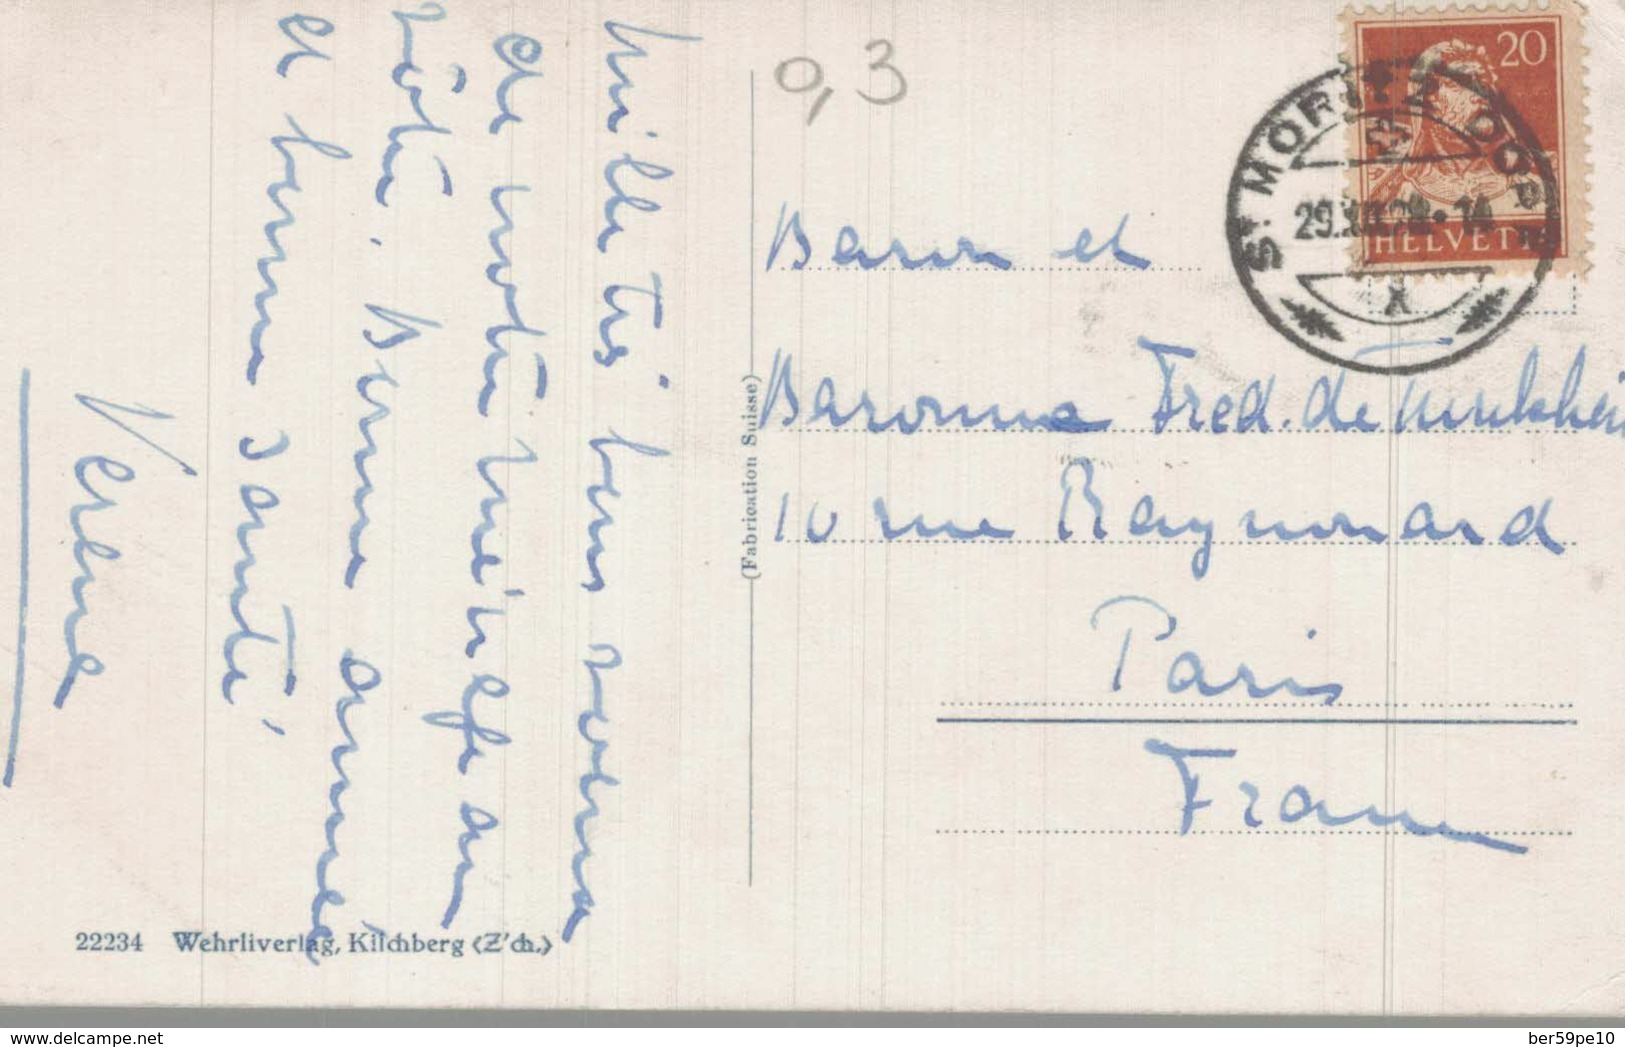 Mille très bons voeux
de notre
vôtre. Bonne année
et bonne santé
0,3
20
HELVETIA
ST. MORITZ DORF
29.XII.
X
Baron et
Baronne Fred. de
10 rue Raynouard
Paris
France
(Fabrication Suisse)
22234 Wehrliverlag, Kilchberg (Z'ch.)
delcampe.net
ber59pe10